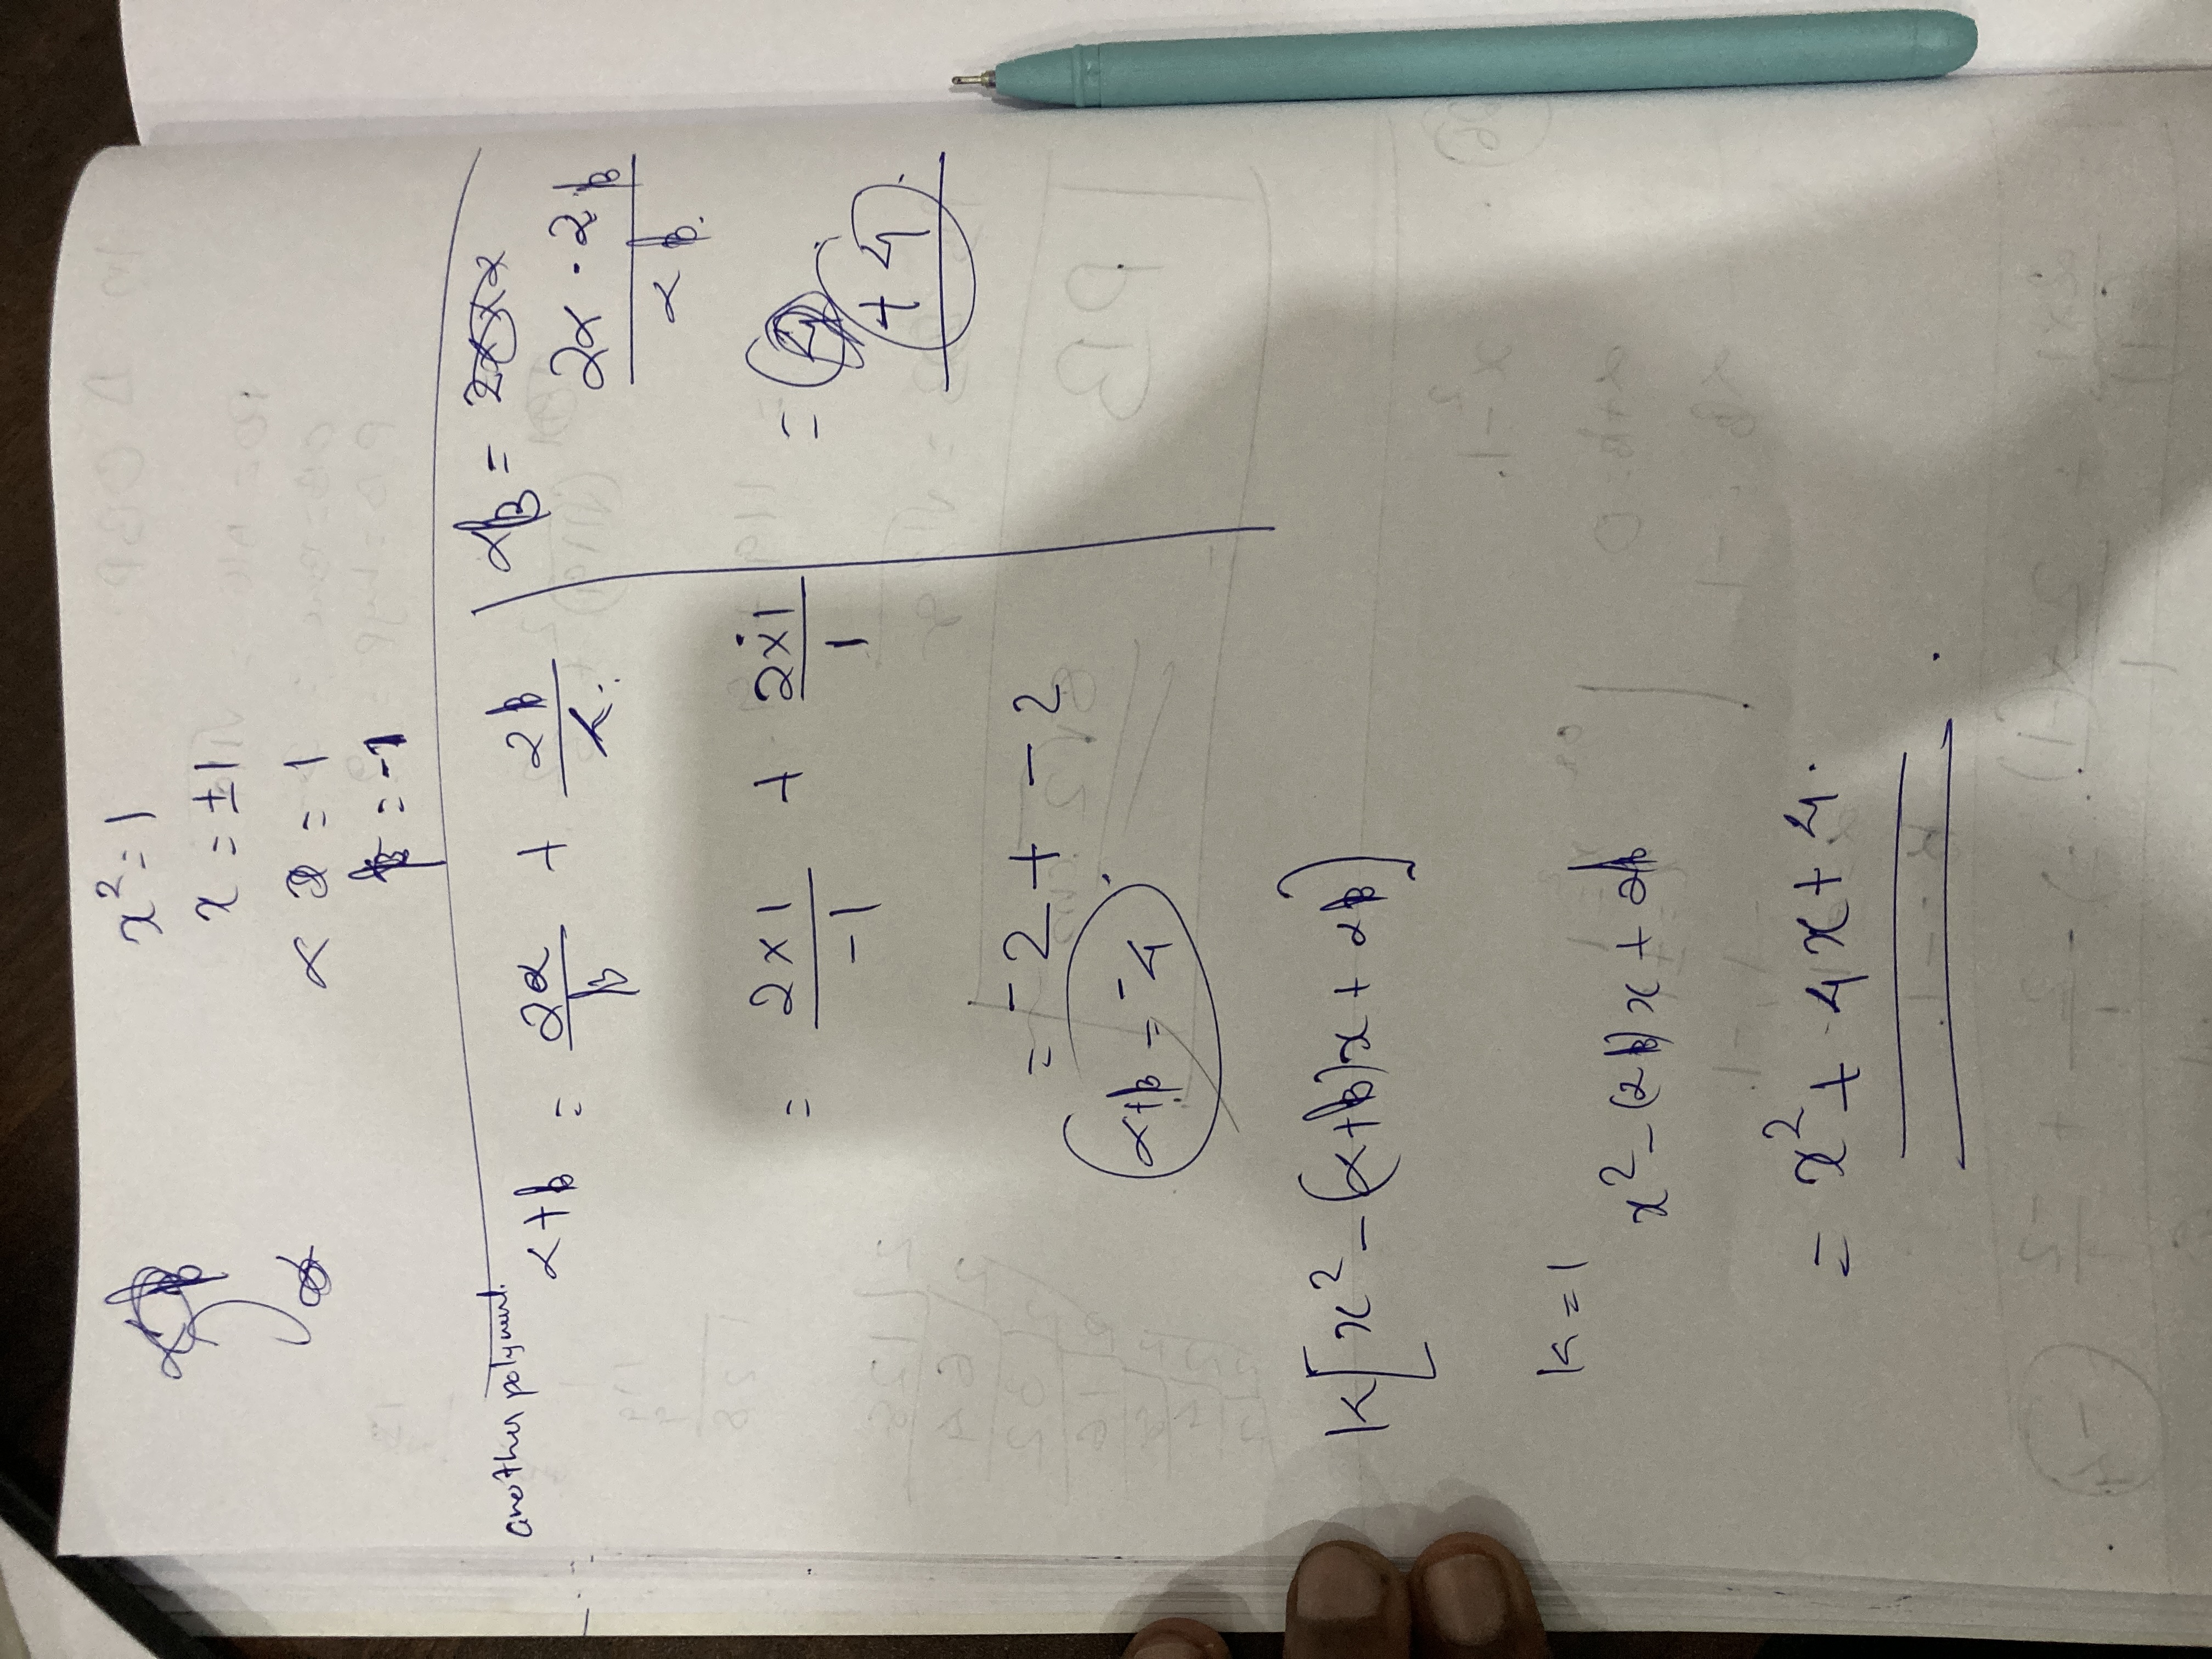 x² = 1
x = ±1
α = 1
β = -1
another polyment.
α+β = 2α/β + 2β/α
= 2×1/-1 + 2×1/1
= -2 + -2
α+β = -4
αβ =
2α · 2β / α β
= +4
k[x² - (α+β)x + αβ]
k = 1
x² - (αβ)x + αβ
= x² + 4x + 4.